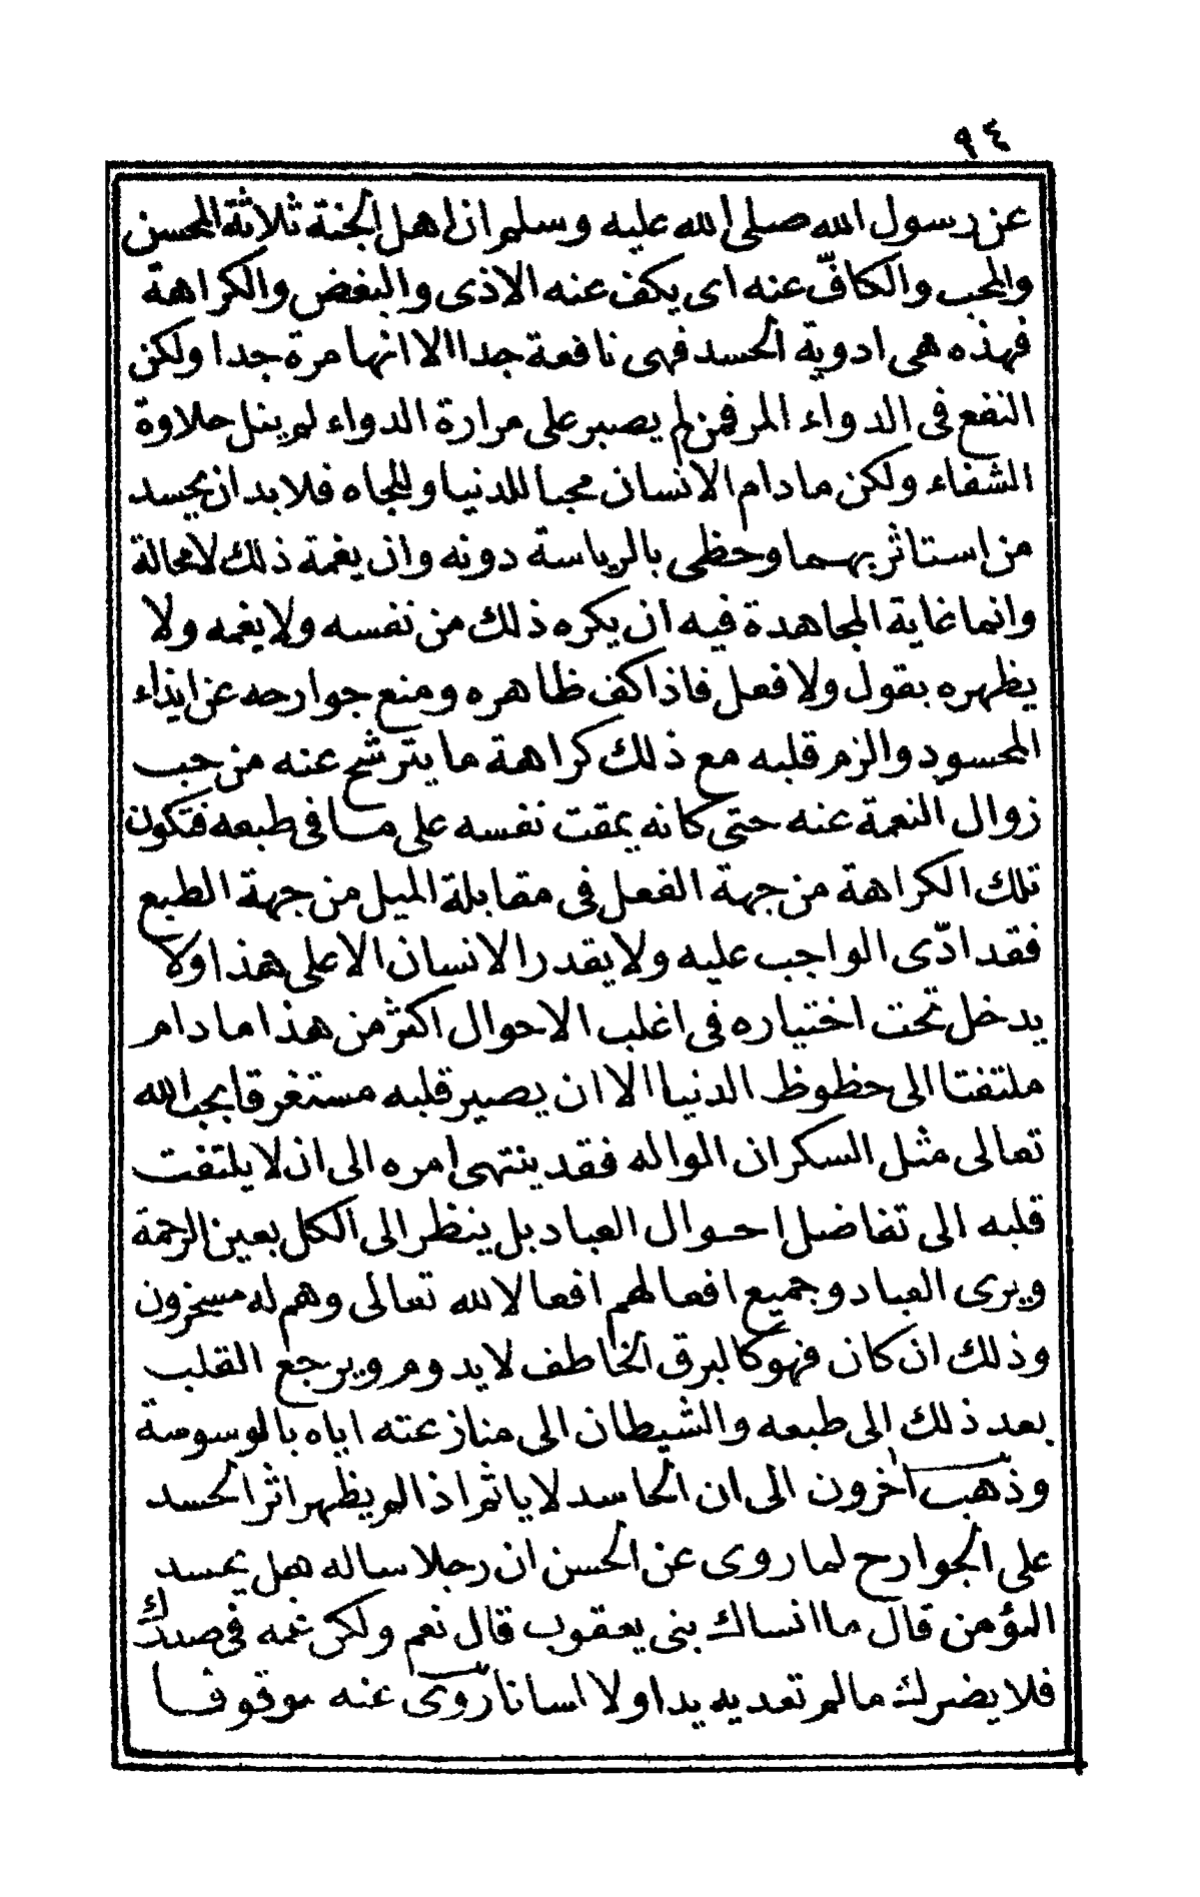 ٩٤
عن رسول الله صلى الله عليه وسلم ان اهل الجنة ثلاثة المحسن
والمحب والكافّ عنه اى يكف عنه الاذى والبغض والكراهة
فهذه هى ادوية الحسد فهى نافعة جدا الا انها مرة جدا ولكن
النفع فى الدواء المر فمن لم يصبر على مرارة الدواء لم ينل حلاوة
الشفاء ولكن مادام الانسان محبا للدنيا وللجاه فلابد ان يحسد
من استاثر بهما وحظى بالرياسة دونه وان يغمة ذلك لامحالة
وانما غاية المجاهدة فيه ان يكره ذلك من نفسه ولا يغمه ولا
يظهره بقول ولا فعل فاذا كف ظاهره ومنع جوارحه عن ايذاء
المحسود والزم قلبه مع ذلك كراهة ما يترشح عنه من حب
زوال النعمة عنه حتى كانه يمقت نفسه على ما فى طبعه فتكون
تلك الكراهة من جهة الفعل فى مقابلة الميل من جهة الطبع
فقد ادّى الواجب عليه ولا يقدر الانسان الا على هذا ولا
يدخل تحت اختياره فى اغلب الاحوال اكثر من هذا مادام
ملتفتا الى حظوظ الدنيا الا ان يصير قلبه مستغرقا بحب الله
تعالى مثل السكران الواله فقد ينتهى امره الى ان لا يلتفت
قلبه الى تفاضل احوال العباد بل ينظر الى الكل بعين الرحمة
ويرى العباد وجميع افعالهم افعالا لله تعالى وهم له مسخرون
وذلك ان كان فهو كالبرق الخاطف لا يدوم ويرجع القلب
بعد ذلك الى طبعه والشيطان الى منازعته اياه بالوسوسة
وذهب اخرون الى ان الحاسد لا ياثم اذا لم يظهر اثر الحسد
على الجوارح لما روى عن الحسن ان رجلا ساله هل يحسد
المؤمن قال ما انساك بنى يعقوب قال نعم ولكن غمه فى صدرك
فلا يضرك مالم تعد به يدا ولا لسانا روى عنه موقوفا